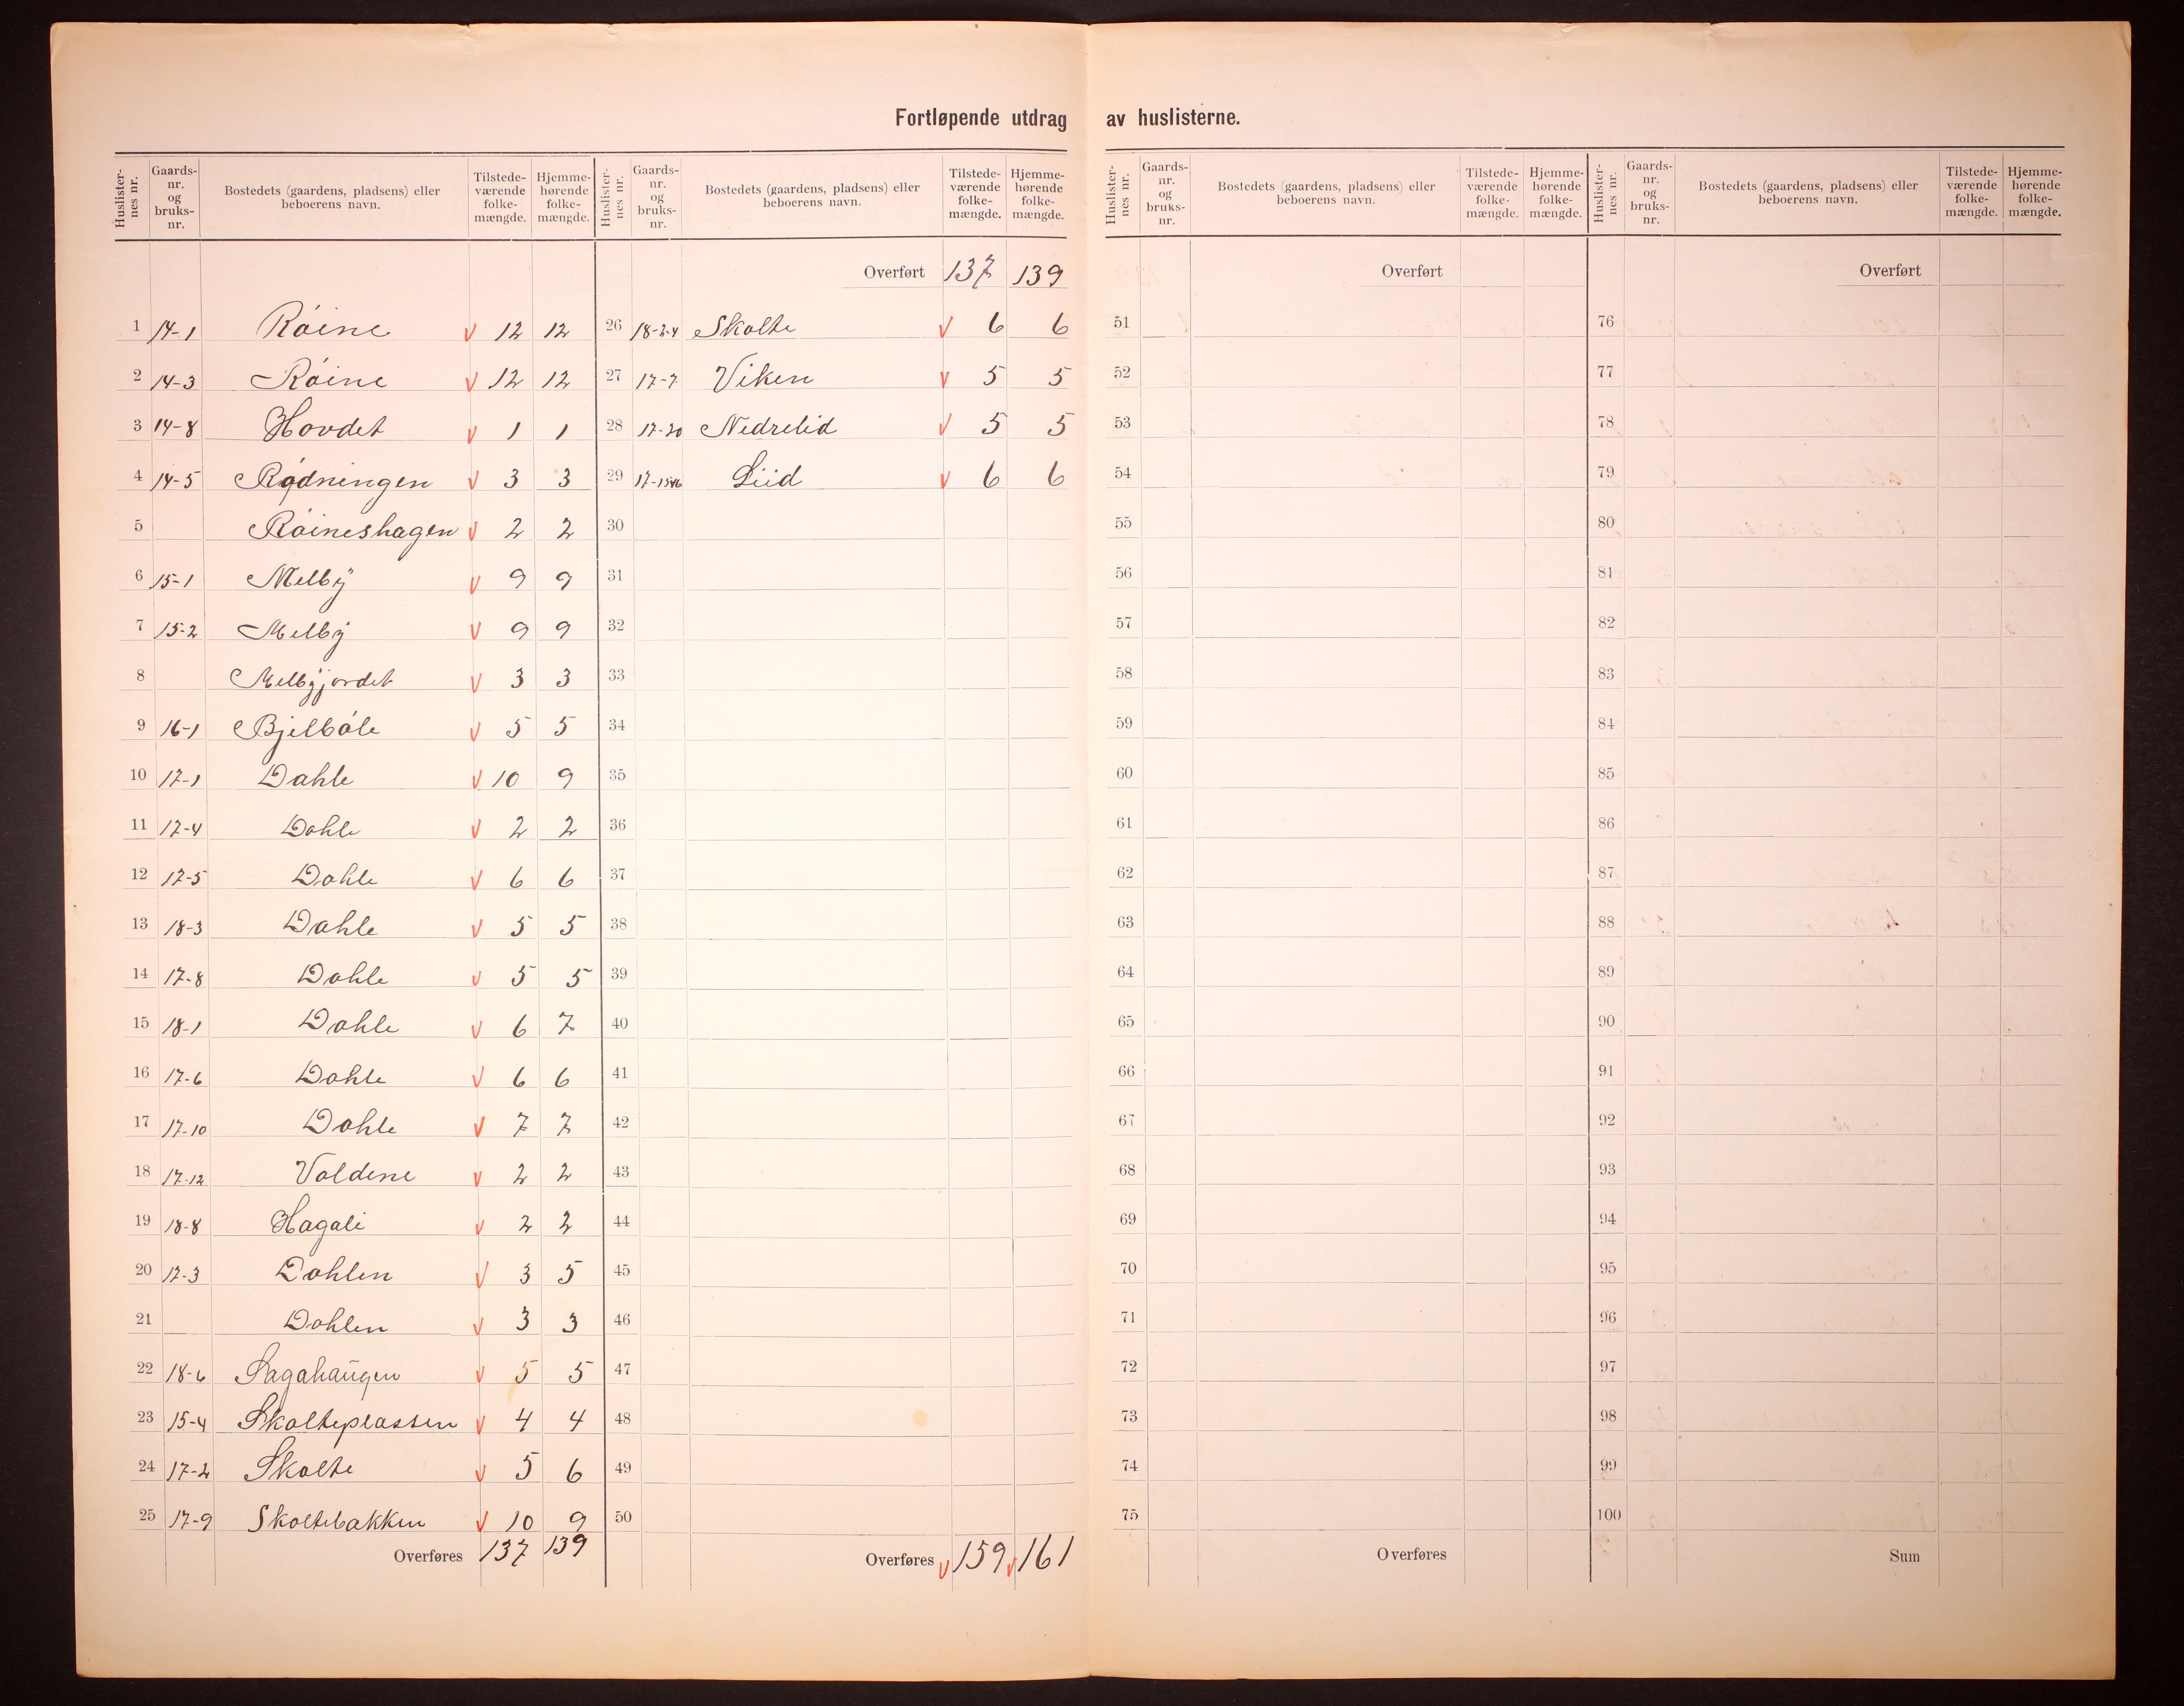 Fortløpende utdrag av huslisterne.
Huslisternes nr. Gaards-nr. og bruks-nr. Bostedets (gaardens, pladsens) eller beboerens navn. Tilstedeværende folkemængde. Hjemmehørende folkemængde.
1 14-1 Röine v 12 12
2 14-3 Röine v 12 12
3 14-8 Hovdet v 1 1
4 14-5 Rødningen v 3 3
5 Röineshagen v 2 2
6 15-1 Melbÿ v 9 9
7 15-2 Melbÿ v 9 9
8 Melbÿjordet v 3 3
9 16-1 Bjelbóle v 5 5
10 17-1 Dahle v 10 9
11 17-4 Dahle v 2 2
12 17-5 Dahle v 6 6
13 18-3 Dahle v 5 5
14 17-8 Dahle v 5 5
15 18-1 Dahle v 6 7
16 17-6 Dahle v 6 6
17 17-10 Dahle v 7 7
18 17-12 Voldene v 2 2
19 18-8 Hagali v 2 2
20 17-3 Dahlen v 3 5
21 Dahlen v 3 3
22 18-6 Sagahaugen v 5 5
23 15-4 Skolteplassen v 4 4
24 17-2 Skolte v 5 6
25 17-9 Skoltebakken v 10 9
Overføres 137 139
Huslisternes nr. Gaards-nr. og bruks-nr. Bostedets (gaardens, pladsens) eller beboerens navn. Tilstedeværende folkemængde. Hjemmehørende folkemængde.
Overført 137 139
26 18-2-4 Skolte v 6 6
27 17-7 Viken v 5 5
28 17-20 Nedrelid v 5 5
29 Liid v 6 6
30
31
32
33
34
35
36
37
38
39
40
41
42
43
44
45
46
47
48
49
50
Overføres v 159 v 161
Huslisternes nr. Gaards-nr. og bruks-nr. Bostedets (gaardens, pladsens) eller beboerens navn. Tilstedeværende folkemængde. Hjemmehørende folkemængde.
Overført
51
52
53
54
55
56
57
58
59
60
61
62
63
64
65
66
67
68
69
70
71
72
73
74
75
Overføres
Huslisternes nr. Gaards-nr. og bruks-nr. Bostedets (gaardens, pladsens) eller beboerens navn. Tilstedeværende folkemængde. Hjemmehørende folkemængde.
Overført
76
77
78
79
80
81
82
83
84
85
86
87
88
89
90
91
92
93
94
95
96
97
98
99
100
Sum